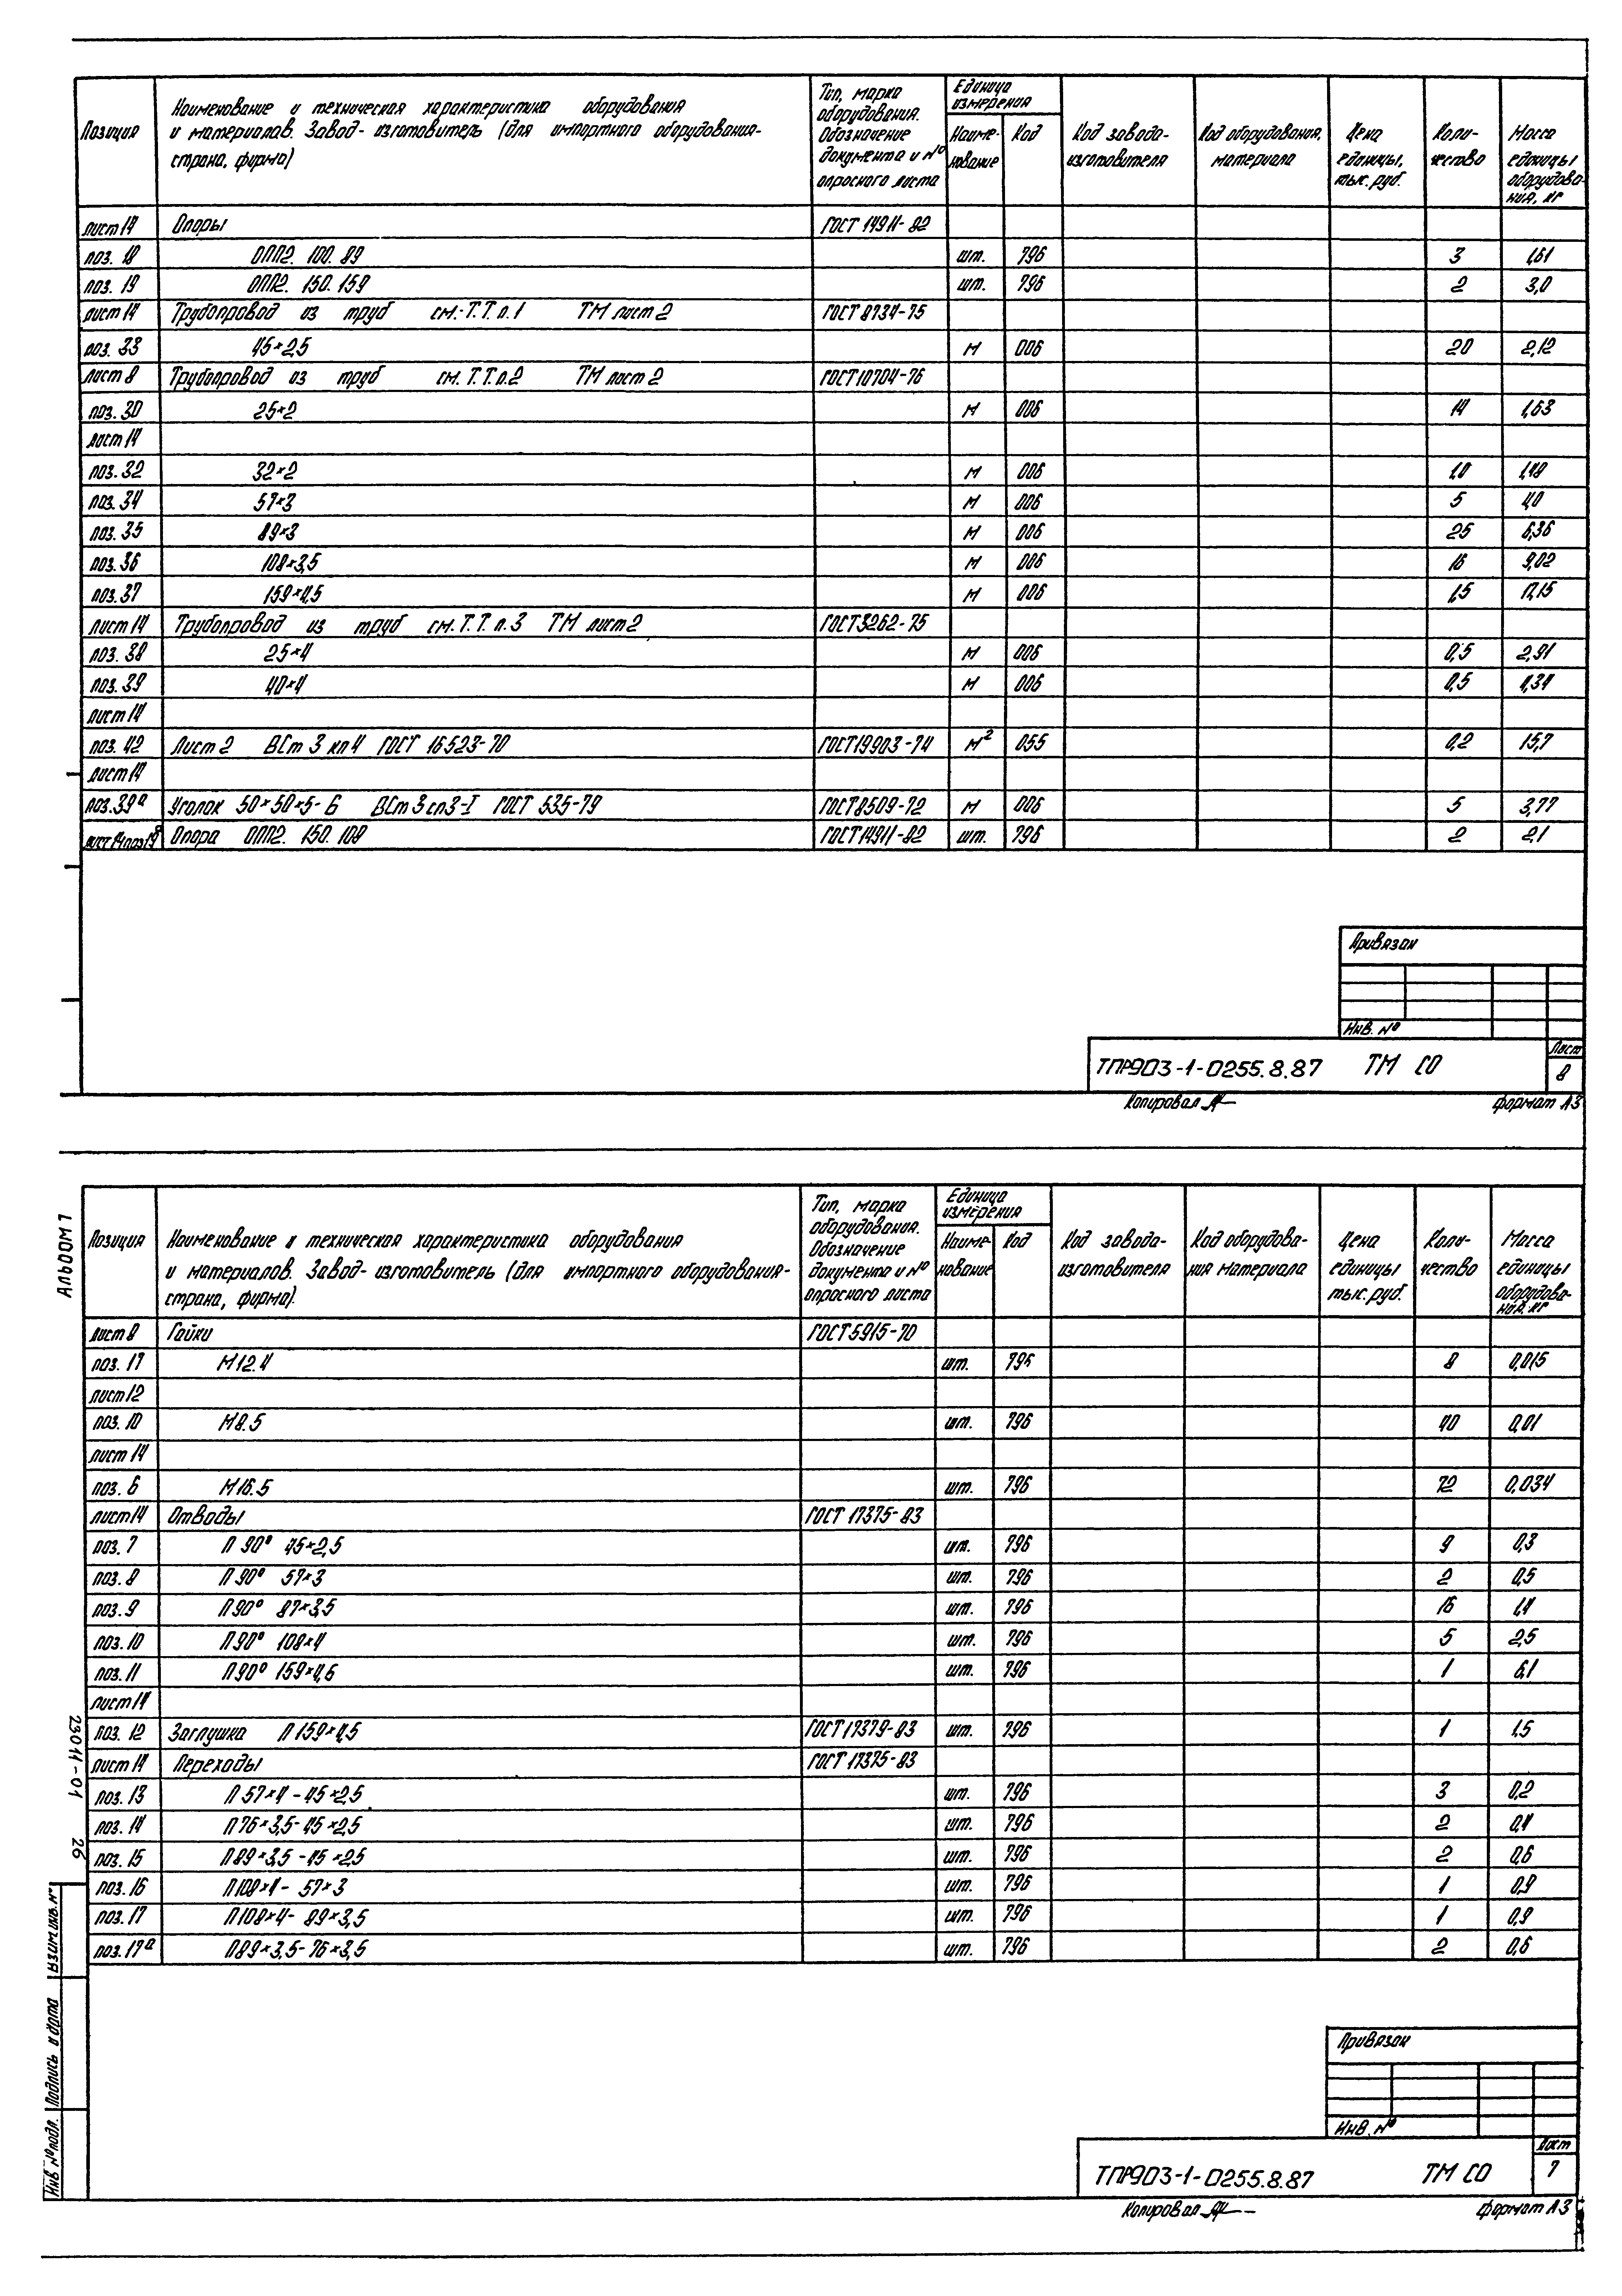 Позиция | Наименование и техническая характеристика оборудования и материалов. Завод-изготовитель (для импортного оборудования- страна, фирма) | Тип, марка оборудования. Обозначение документа и № опросного листа | Единица измерения | Наиме-нование | Код | Код завода-изготовителя | Код оборудования, материала | Цена единицы, тыс. руб. | Коли-чество | Масса единицы оборудова-ния, кг
лист 14 Опоры ГОСТ 14911-82
поз. 18 ОПП2. 100. 89 шт. 796 3 1,61
поз. 19 ОПП2. 150. 159 шт. 796 2 3,0
лист 14 Трубопровод из труб см. Т.Т. п.1 ТМ лист 2 ГОСТ 8734-75
поз. 33 45×2,5 м 006 20 2,12
лист 8 Трубопровод из труб см. Т.Т. п.2 ТМ лист 2 ГОСТ 10704-76
поз. 30 25×2 м 006 14 1,63
лист 14
поз. 32 32×2 м 006 1,0 1,48
поз. 34 57×3 м 006 5 4,0
поз. 35 89×3 м 006 25 6,36
поз. 36 108×3,5 м 006 16 9,02
поз. 37 159×4,5 м 006 1,5 17,15
лист 14 Трубопровод из труб см. Т.Т. п.3 ТМ лист 2 ГОСТ 3262-75
поз. 38 25×4 м 006 0,5 2,91
поз. 39 40×4 м 006 0,5 4,34
лист 14
поз. 42 Лист 2 ВСт 3 кп 4 ГОСТ 16523-70 ГОСТ 19903-74 м² 055 0,2 15,7
лист 14
поз. 39а Уголок 50×50×5-Б ВСт 3 сп 3-I ГОСТ 535-79 ГОСТ 8509-72 м 006 5 3,77
лист 14 поз 19 Опора ОПП2. 150. 108 ГОСТ 14911-82 шт. 796 2 2,1
Привязан
Инв. №
ТПР903-1-0255.8.87 ТМ СО
Лист
8
Копировал
Формат А3
Альбом 1
Позиция | Наименование и техническая характеристика оборудования и материалов. Завод-изготовитель (для импортного оборудования- страна, фирма). | Тип, марка оборудования. Обозначение документа и № опросного листа | Единица измерения | Наиме-нование | Код | Код завода-изготовителя | Код оборудова-ния материала | Цена единицы тыс. руб. | Коли-чество | Масса единицы оборудова-ния, кг
лист 8 Гайки ГОСТ 5915-70
поз. 17 М12.4 шт. 796 8 0,015
лист 12
поз. 10 М8.5 шт. 796 40 0,01
лист 14
поз. 6 М16.5 шт. 796 72 0,034
лист 14 Отводы ГОСТ 17375-83
поз. 7 П 90° 45×2,5 шт. 796 9 0,3
поз. 8 П 90° 57×3 шт. 796 2 0,5
поз. 9 П 90° 87×3,5 шт. 796 16 1,4
поз. 10 П 90° 108×4 шт. 796 5 2,5
поз. 11 П 90° 159×4,5 шт. 796 1 6,1
лист 14
поз. 12 Заглушка П 159×4,5 ГОСТ 17379-83 шт. 796 1 1,5
лист 14 Переходы ГОСТ 17375-83
поз. 13 П 57×4-45×2,5 шт. 796 3 0,2
поз. 14 П 76×3,5-45×2,5 шт. 796 2 0,4
поз. 15 П 89×3,5-45×2,5 шт. 796 2 0,6
поз. 16 П 108×4-57×3 шт. 796 1 0,9
поз. 17 П 108×4-89×3,5 шт. 796 1 0,9
поз. 17а П 89×3,5-76×3,5 шт. 796 2 0,6
23011-01 26
Взам. инв. №
Подпись и дата
Инв № подл.
Привязан
Инв. №
ТПР903-1-0255.8.87 ТМ СО
Лист
7
Копировал
Формат А3